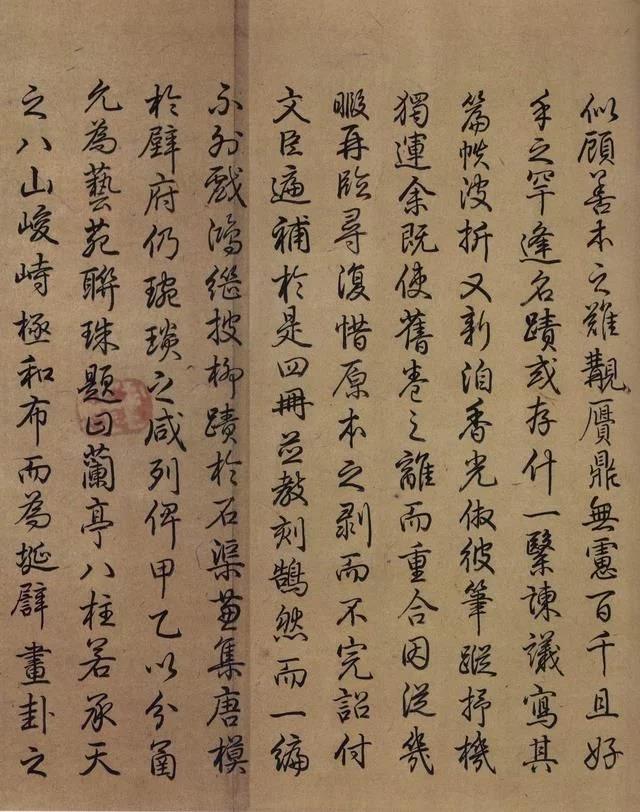 似顧善本之難覯贋鼎無慮百千且好
手之罕逢名蹟或存什一繄諫議寫其
篇帙波折又新洎香光倣彼筆蹤抒機
獨運余既使舊卷之離而重合因從幾
暇再臨尋復惜原本之剥而不完詔付
文臣補於是四冊並教刻鵠然而一編
不戲鴻繼披柳蹟於石渠並集唐模
於璧府仍琬琰之咸列俾甲乙以分函
允為藝苑聯珠題曰蘭亭八柱若承天
之八山峻峙極和布而為埏譬畫卦之